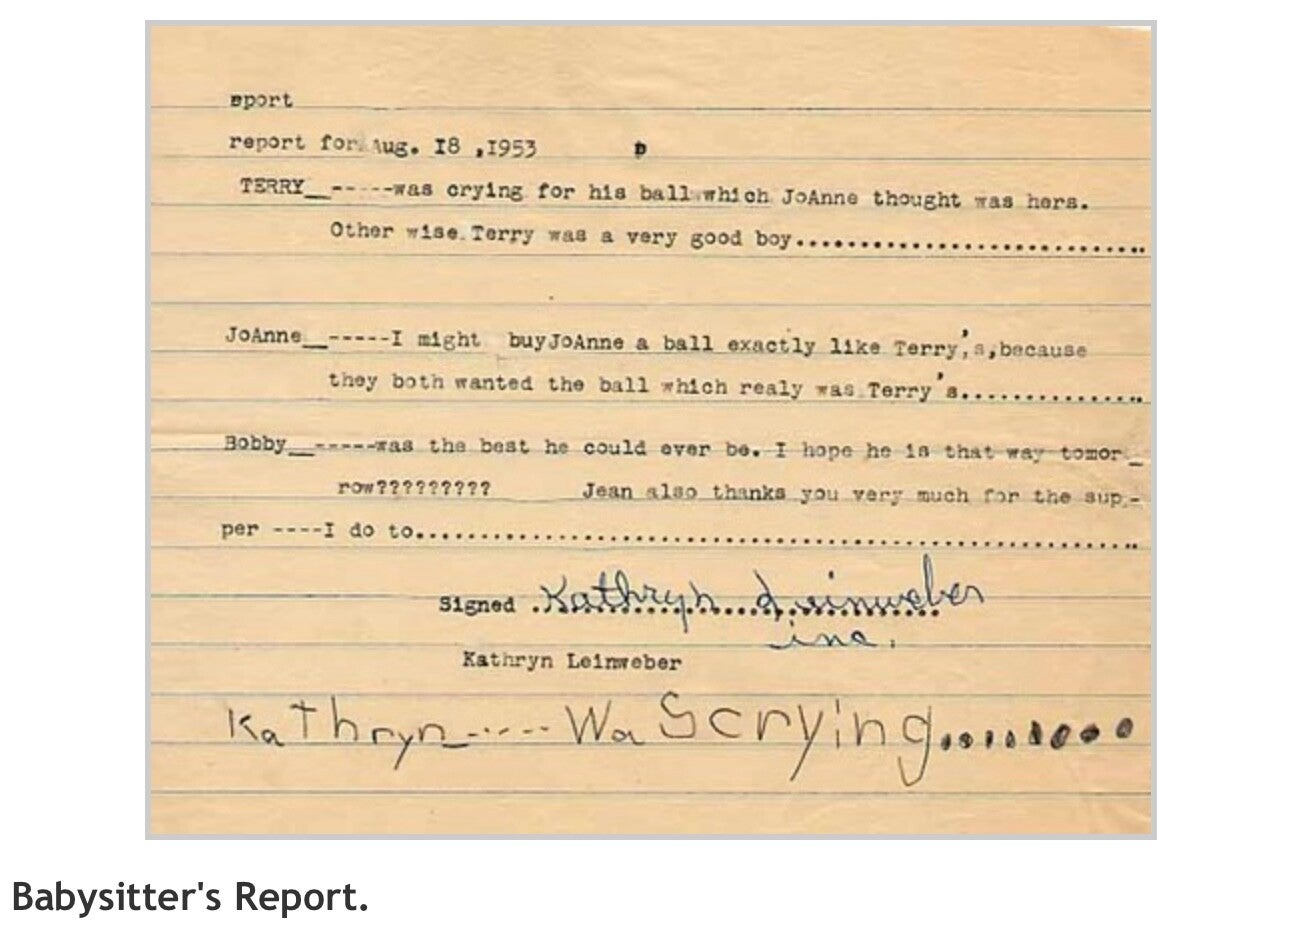 eport
report for Aug. I8 ,I953
TERRY_-----was crying for his ball which JoAnne thought was hers.
Other wise Terry was a very good boy............................
JoAnne_-----I might buyJoAnne a ball exactly like Terry,'s,because
they both wanted the ball which realy was Terry's...............
Bobby_-----was the best he could ever be. I hope he is that way tomor_
row????????? Jean also thanks you very much for the sup-
per ----I do to.......................................................
Signed .Kathryn Leinweber
inc.
Kathryn Leinweber
KaThryn----- WaScrying..........
Babysitter's Report.